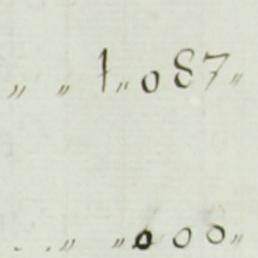 „ „ 1„087„
. . „ „000„